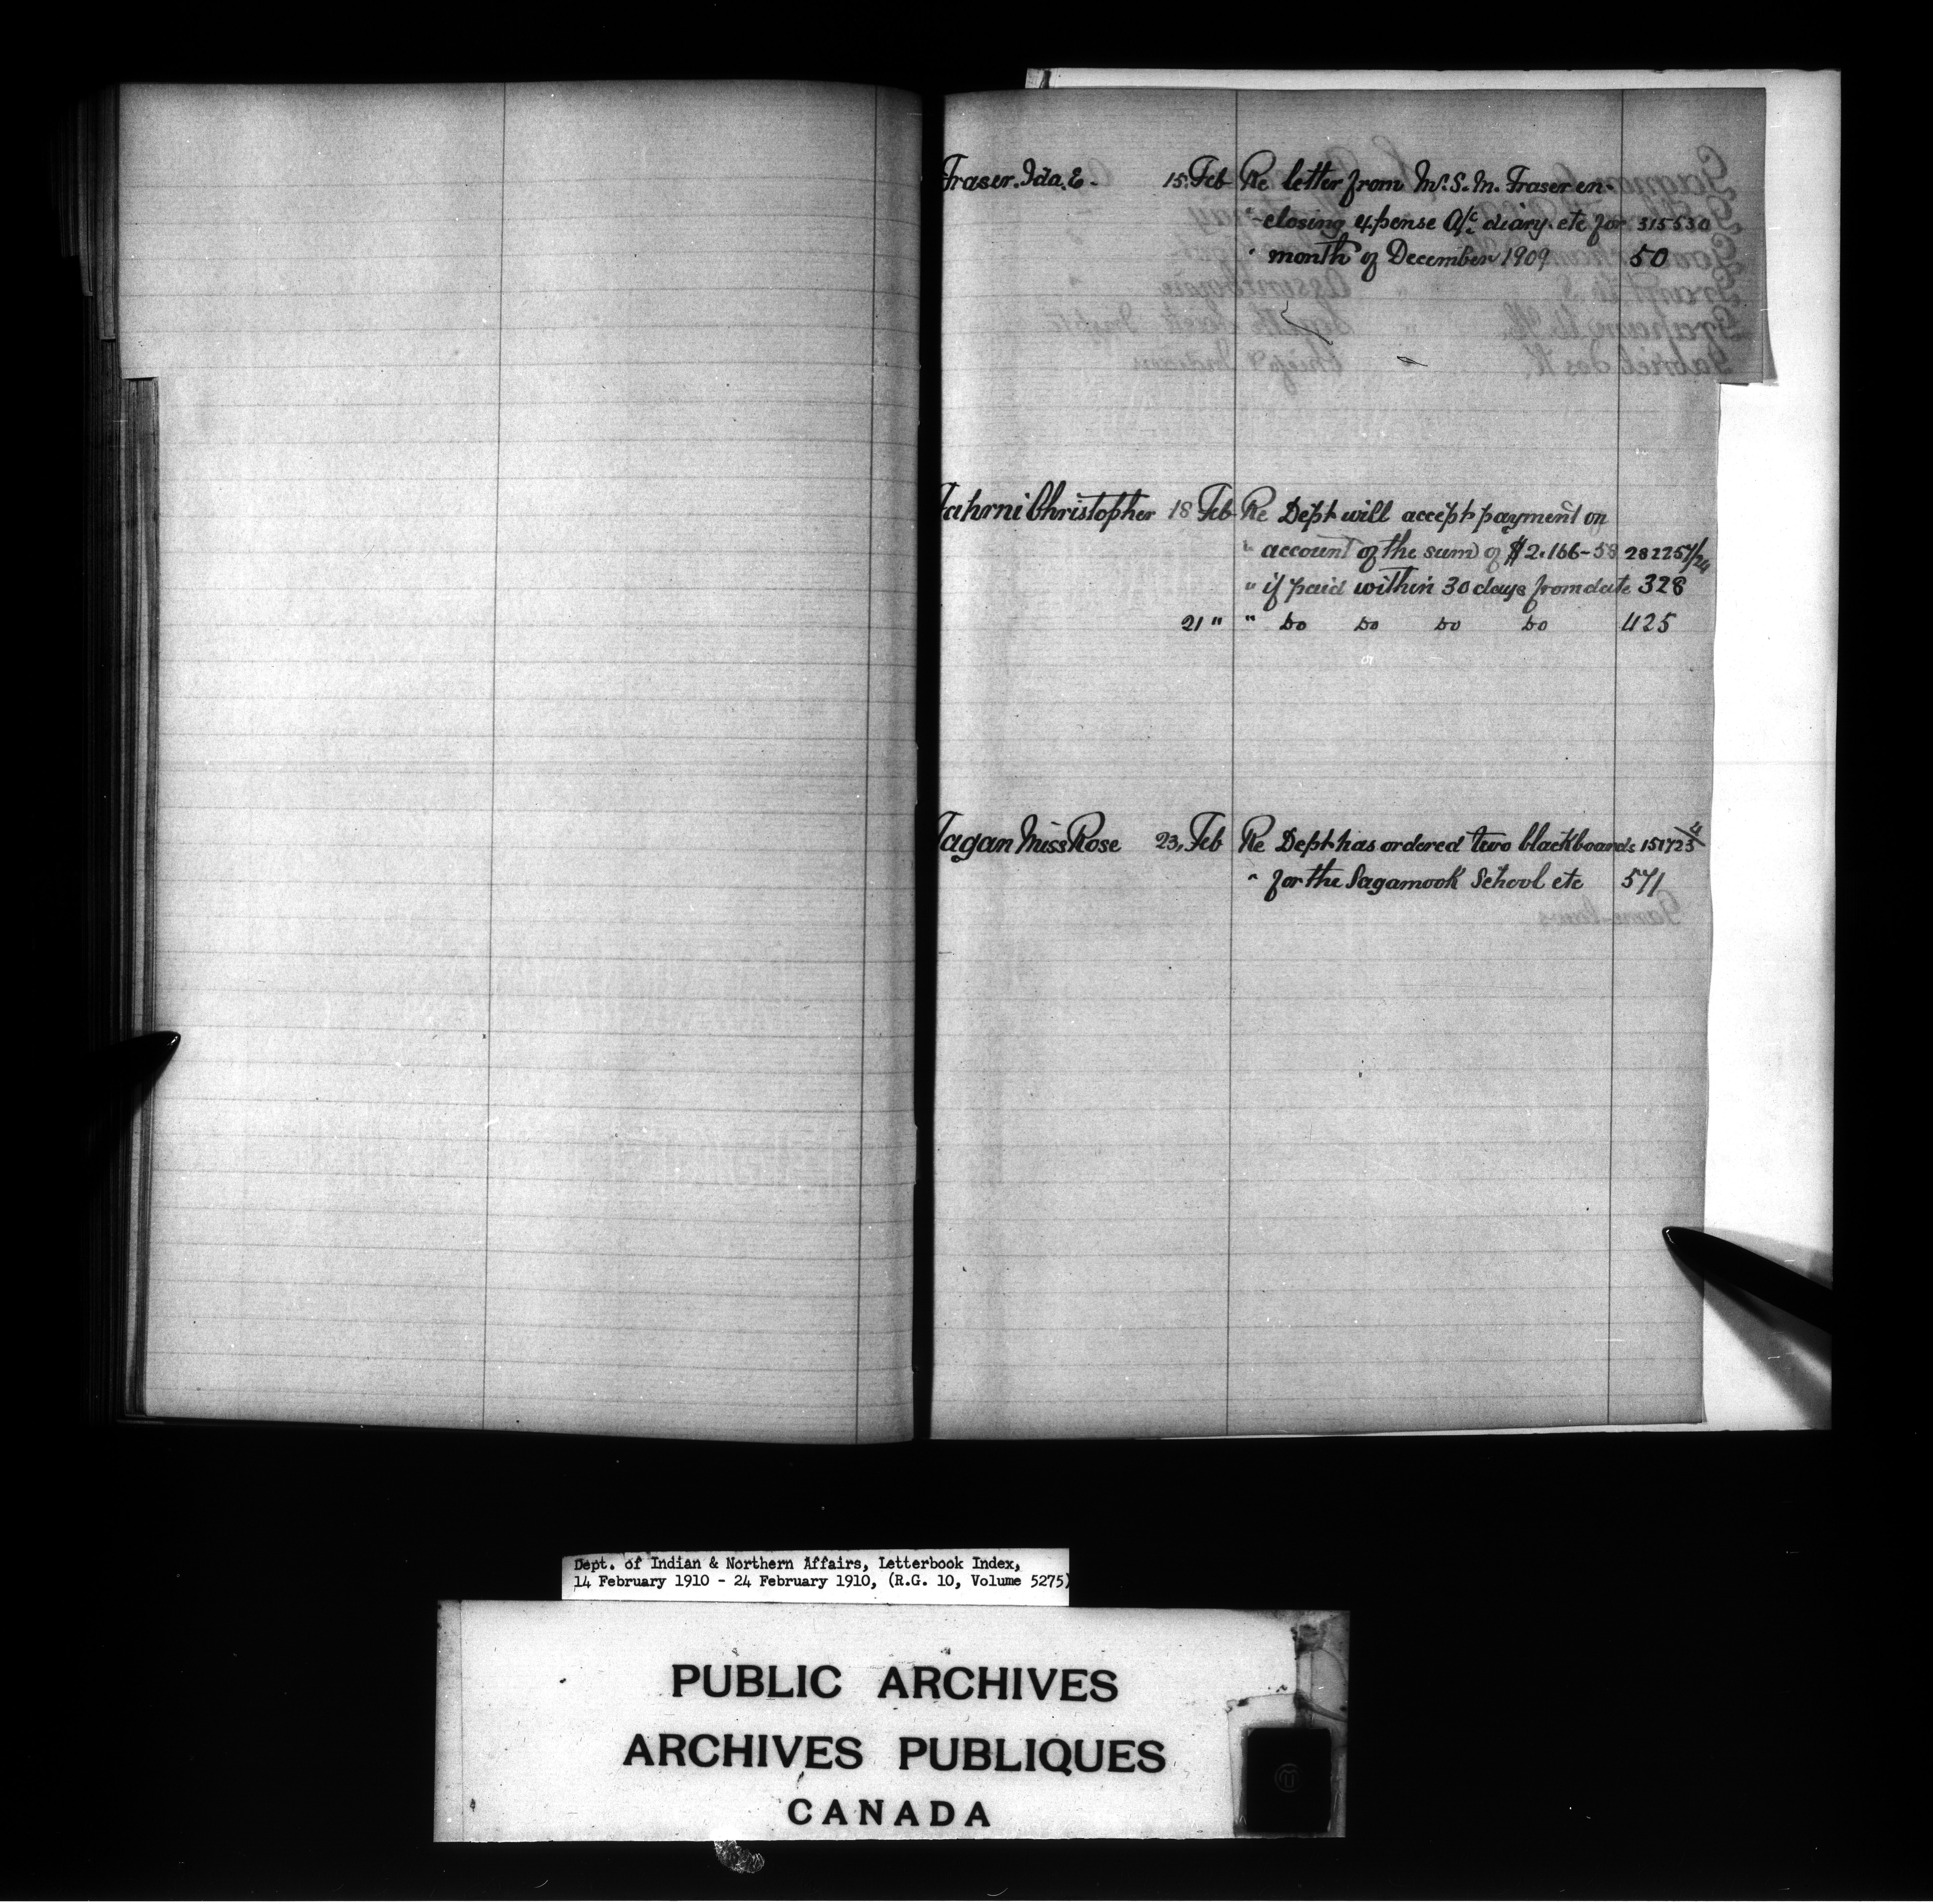 Fraser. Ida. E. 15. Feb Re letter from Mr. S. M. Fraser en-
-closing expense A/c diary. etc for 315530
" month of December 1909 50
Fahrni Christopher 18 Feb Re Dept will accept payment on
" account of the sum of $2.166-58 282257/24
" if paid within 30 days from date 328
21 " " Do Do Do Do 425
Fagan Miss Rose 23. Feb Re Dept has ordered two blackboards
" for the Sagamook School etc 571
Dept. of Indian & Northern Affairs, Letterbook Index,
14 February 1910 - 24 February 1910, (R.G. 10, Volume 5275)
PUBLIC ARCHIVES
ARCHIVES PUBLIQUES
CANADA